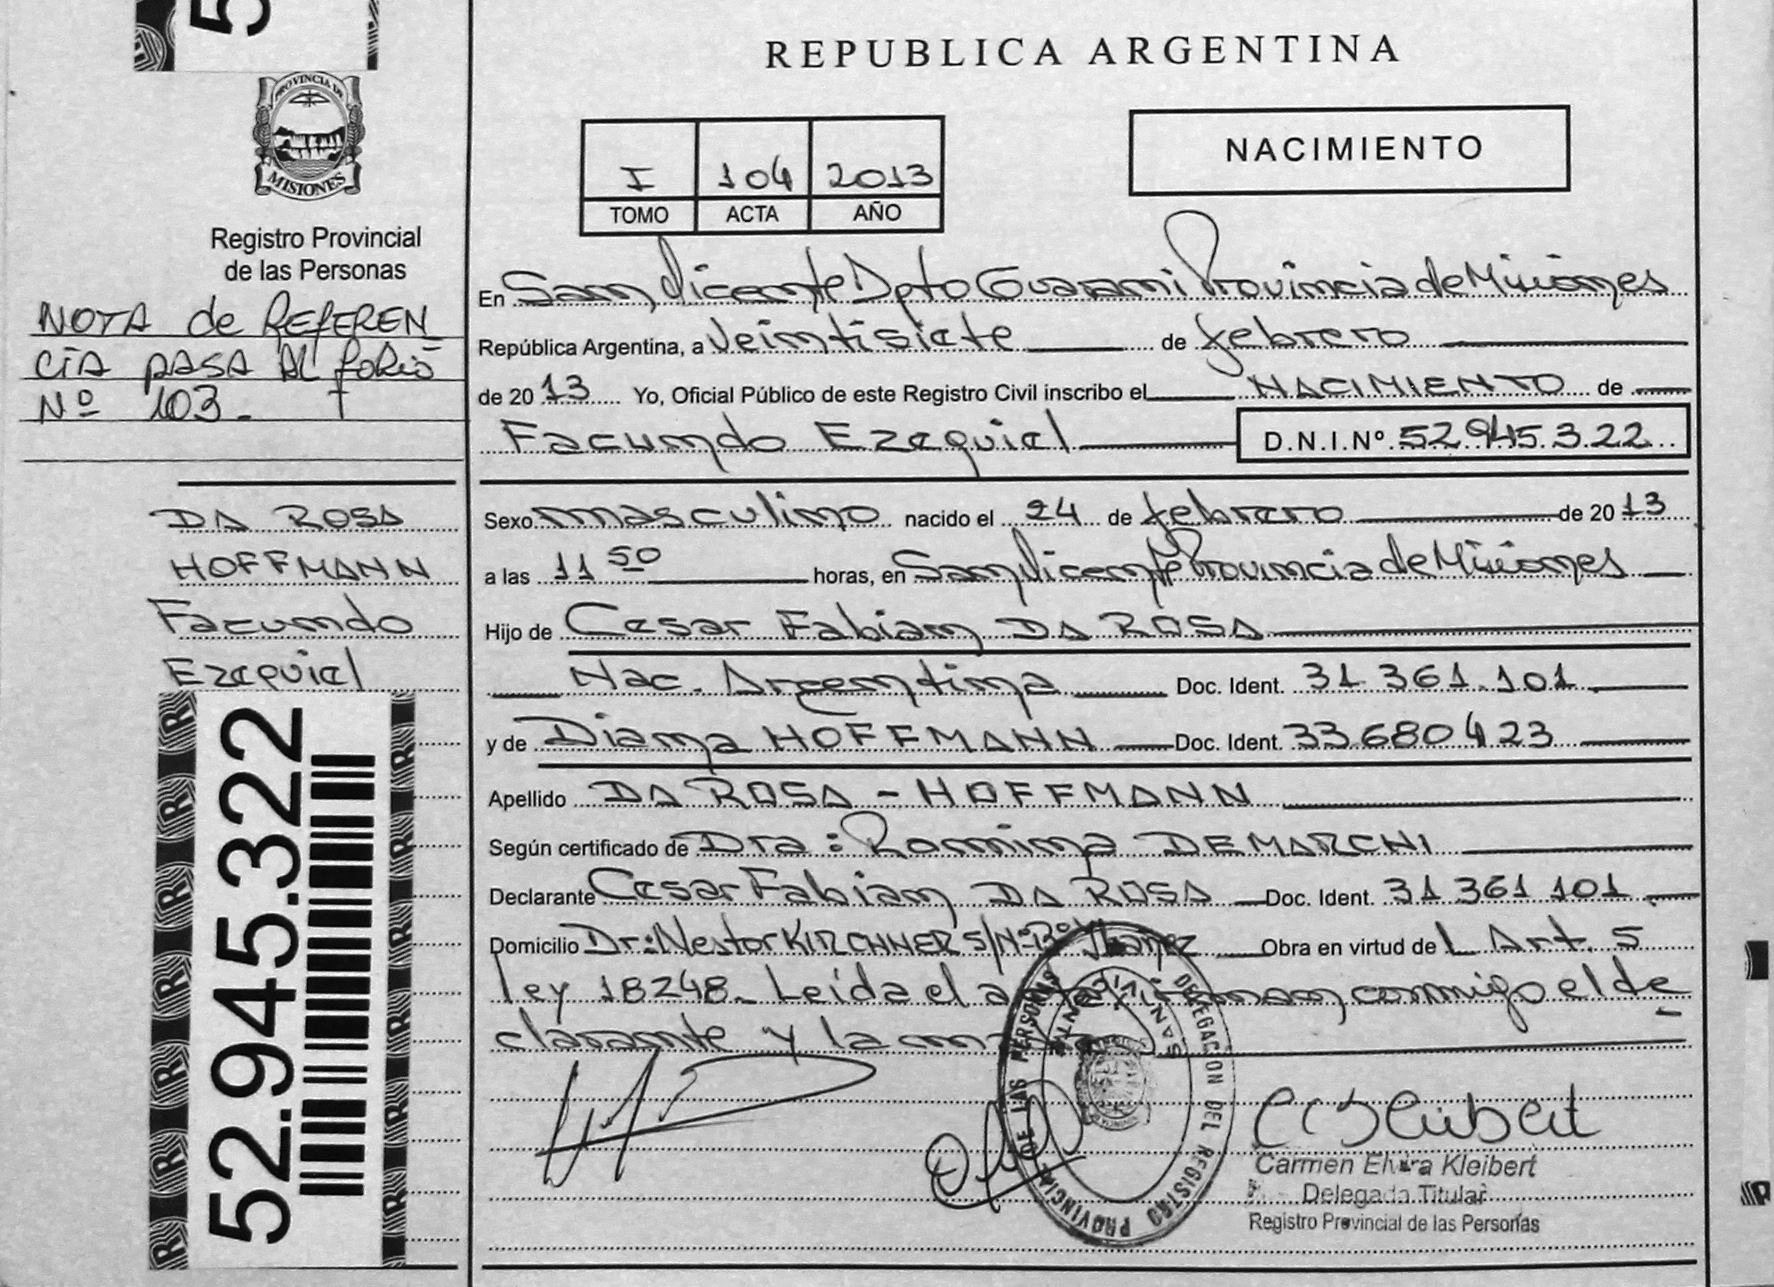 5
PROVINCIA DE
MISIONES
Registro Provincial
de las Personas
NOTA de REFEREN
CIA PASA AL folio
Nº 103.-
DA ROSA
HOFFMANN
Facundo
Ezequiel
52.945.322
REPUBLICA ARGENTINA
I 104 2013
TOMO ACTA AÑO
NACIMIENTO
En San Vicente Dpto Guarani Provincia de Misiones
República Argentina, a Veintisiete de febrero
de 2013 Yo, Oficial Público de este Registro Civil inscribo el NACIMIENTO de
Facundo Ezequiel D.N.I.Nº 52.945.322
Sexo masculino nacido el 24 de febrero de 2013
a las 11 50 horas, en San Vicente Provincia de Misiones
Hijo de Cesar Fabian DA ROSA
Nac. Argentina Doc. Ident. 31.361.101
y de Diana HOFFMANN Doc. Ident. 33.680423
Apellido DA ROSA - HOFFMANN
Según certificado de Dra: Romina DEMARCHI
Declarante Cesar Fabian DA ROSA Doc. Ident. 31 361 101
Domicilio Dr: Nestor KIRCHNER S/Nº Bº Obra en virtud del Art. 5
ley 18248. Leída el conmigo el de
clarante y la
PROVINCIAL DE LAS PERSONAS
DELEGACION DEL REGISTRO
SAN VICENTE
Carmen Elvira Kleibert
Delegada Titular
Registro Provincial de las Personas